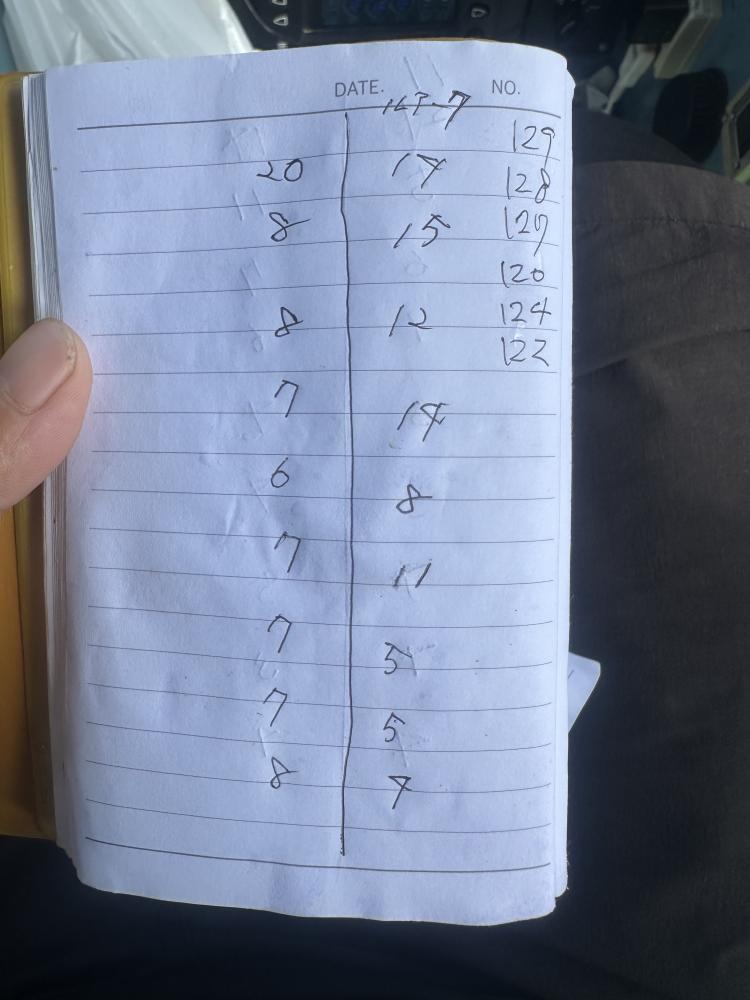 DATE. NO.
129
20 14 128
8 15 127
120
8 12 124
122
7
14
6
8
7
11
7
5
7
5
8
7